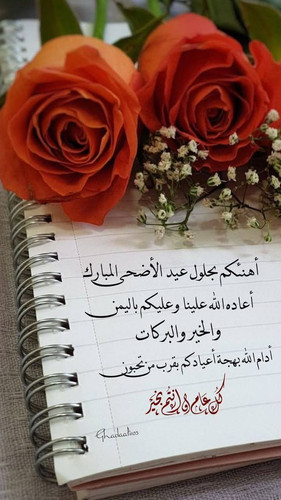 أهنئكم بحلول عيد الأضحى المبارك
أعاده الله علينا وعليكم باليمن
والخير والبركات
أدام الله بهجة أعيادكم بقرب من تحبون
كل عام وأنتم بخير